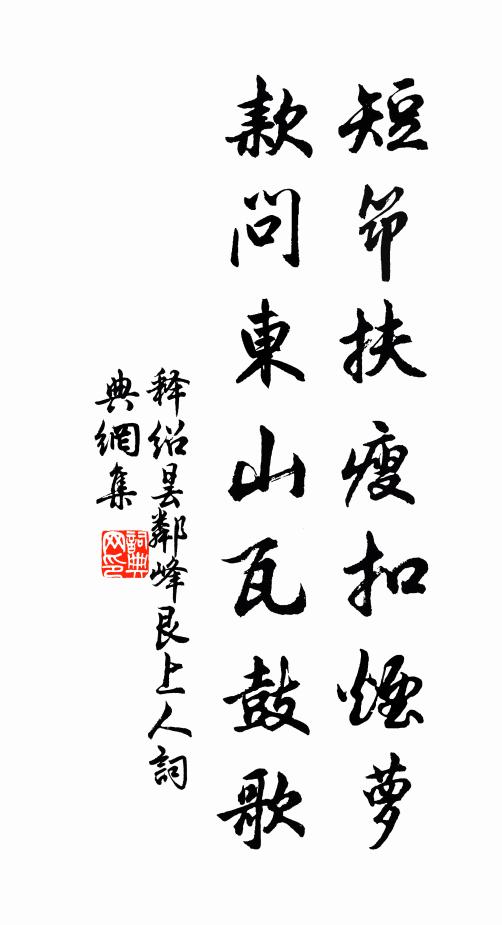 短筇扶瘦扣煙萝
款問東山瓦鼓歌
释紹曇鄰峰艮上人詞
典網集
詞典
网印